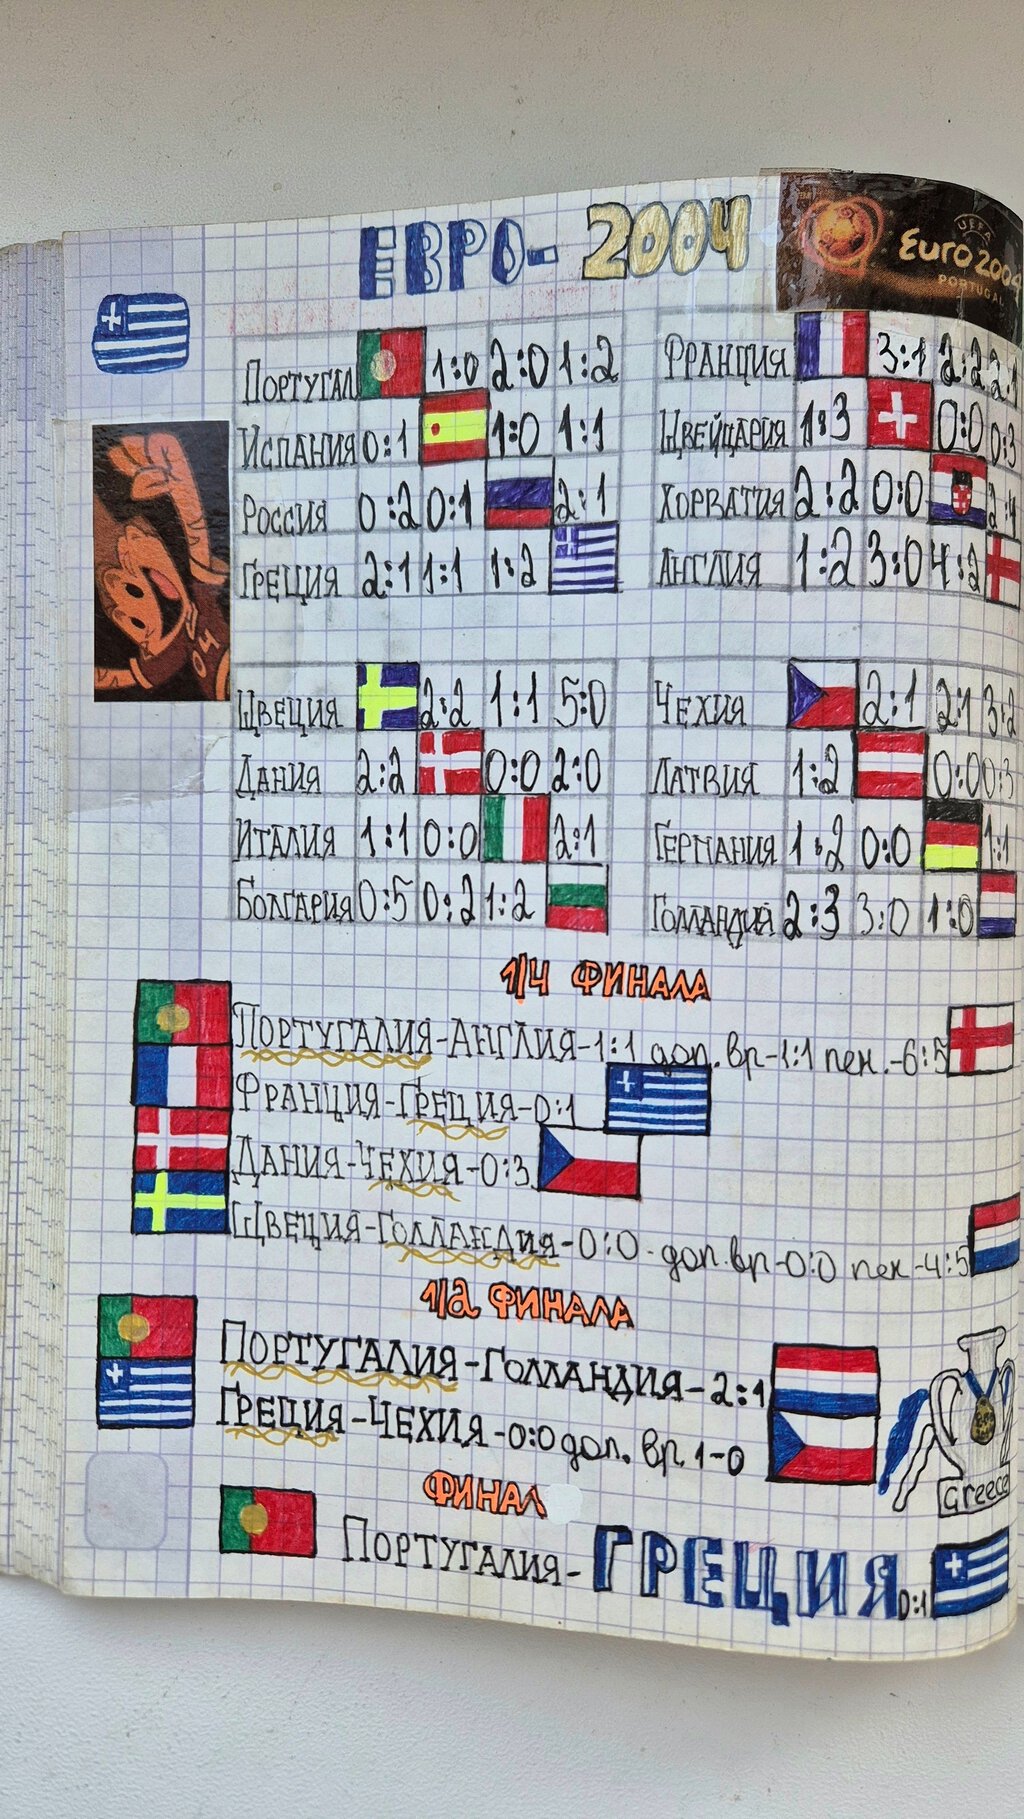 ЕВРО-2004
UEFA
Euro 2004
PORTUGAL
ПОРТУГАЛ 1:0 2:0 1:2
ИСПАНИЯ 0:1 1:0 1:1
РОССИЯ 0:2 0:1 2:1
ГРЕЦИЯ 2:1 1:1 1:2
ФРАНЦИЯ 3:1 2:2 2:1
ШВЕЙЦАРИЯ 1:3 0:0 0:3
ХОРВАТИЯ 2:2 0:0 2:4
АНГЛИЯ 1:2 3:0 4:2
04
ШВЕЦИЯ 2:2 1:1 5:0
ДАНИЯ 2:2 0:0 2:0
ИТАЛИЯ 1:1 0:0 2:1
БОЛГАРИЯ 0:5 0:2 1:2
ЧЕХИЯ 2:1 2:1 3:2
ЛАТВИЯ 1:2 0:0 0:3
ГЕРМАНИЯ 1:2 0:0 1:1
ГОЛЛАНДИЯ 2:3 3:0 1:0
1/4 ФИНАЛА
ПОРТУГАЛИЯ-АНГЛИЯ-1:1 доп. вр-1:1 пен.-6:5
ФРАНЦИЯ-ГРЕЦИЯ-0:1
ДАНИЯ-ЧЕХИЯ-0:3
ШВЕЦИЯ-ГОЛЛАНДИЯ-0:0-доп.вр-0:0 пен-4:5
1/2 ФИНАЛА
ПОРТУГАЛИЯ-ГОЛЛАНДИЯ-2:1
ГРЕЦИЯ-ЧЕХИЯ-0:0 доп. вр. 1-0
Greece
ФИНАЛ
ПОРТУГАЛИЯ-ГРЕЦИЯ 0:1